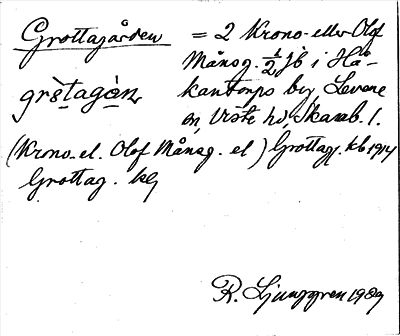 Grottagården = 2 Krono- eller Olof
Månsg. ½ jb i Hå-
gròtagàn kantorps by, Levene
sn, Viste hd, Skarab. l.
(Krono- el. Olof Månsg. el) Grottag. kb 1914
Grottag. kg
R. Ljunggren 1989